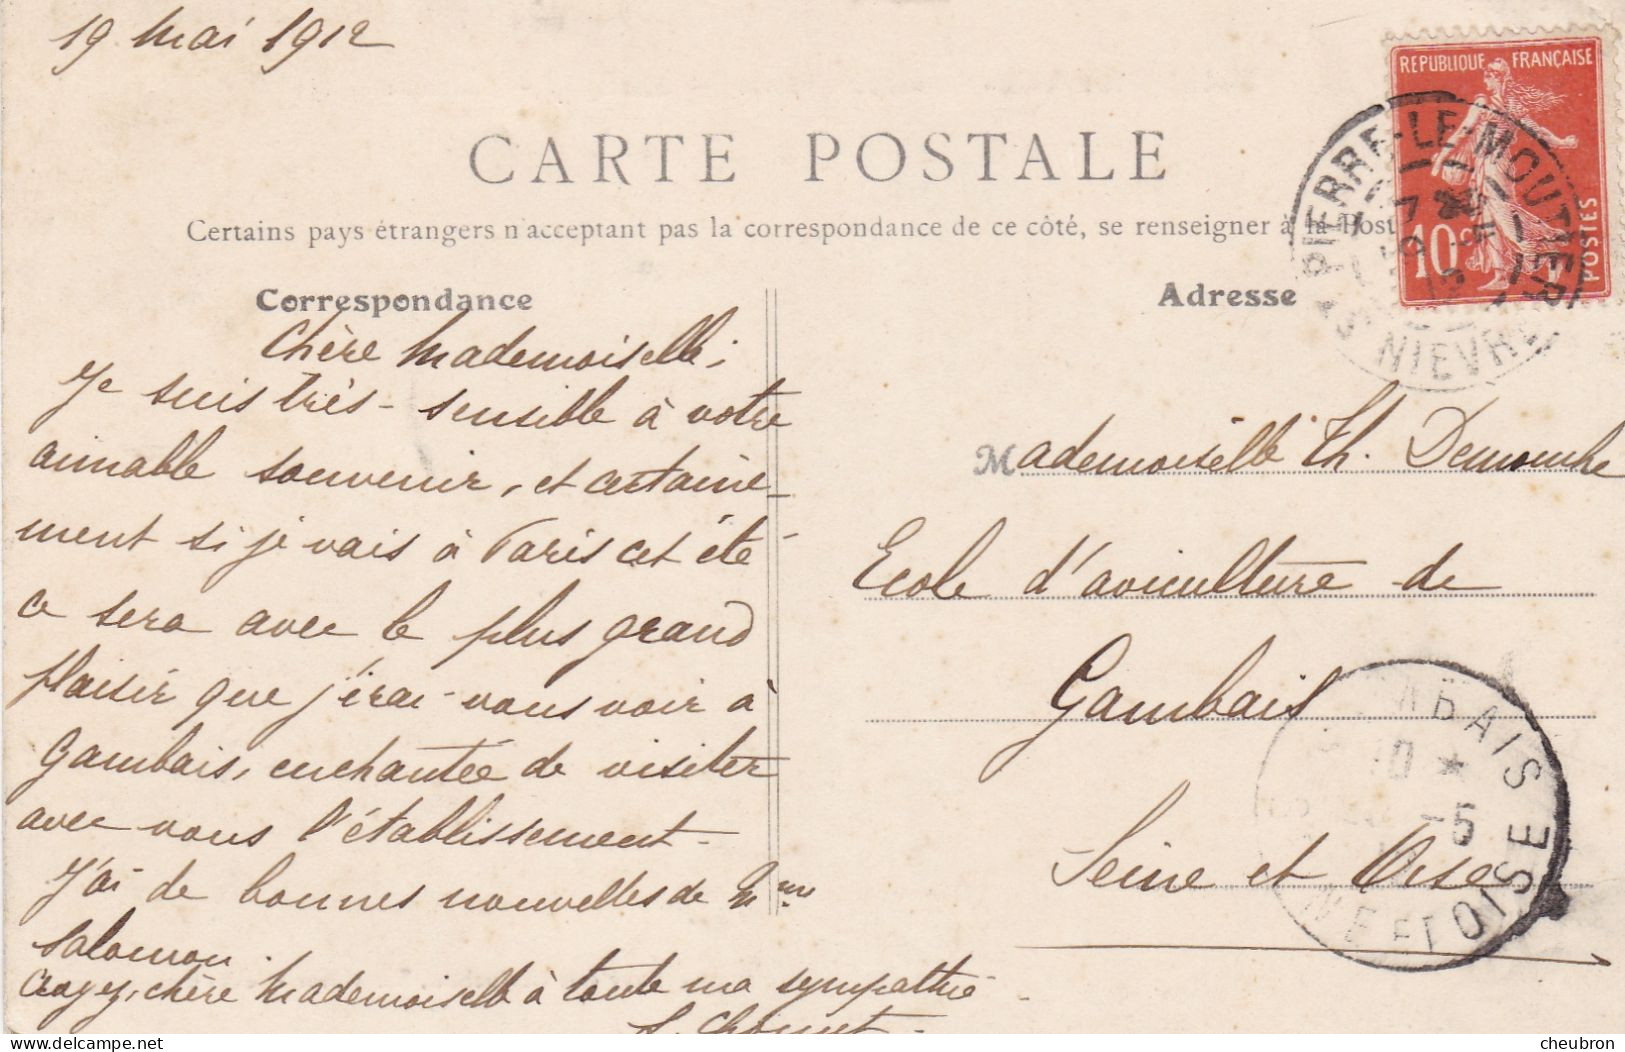 19 Mai 1912
CARTE POSTALE
Certains pays étrangers n'acceptant pas la correspondance de ce côté, se renseigner à la Post
Correspondance
Chère Mademoiselle,
Je suis très-sensible à votre
aimable souvenir, et certaine-
ment si je vais à Paris cet été
ce sera avec le plus grand
plaisir que j'irai-vous voir à
Gambais, enchantée de visiter
avec vous l'établissement-
J'ai de bonnes nouvelles de Mme
Salomon.
Croyez, chère Mademoiselle à toute ma sympathie
Adresse
Mademoiselle Th.
Ecole d'aviculture de
Gambais
Seine et Oise
REPUBLIQUE FRANÇAISE
10 c
POSTES
PIERRE-LE-MOUTIER
NIEVRE
BAIS
10 *
-5
NE ET OISE
delcampe.net
cheubron